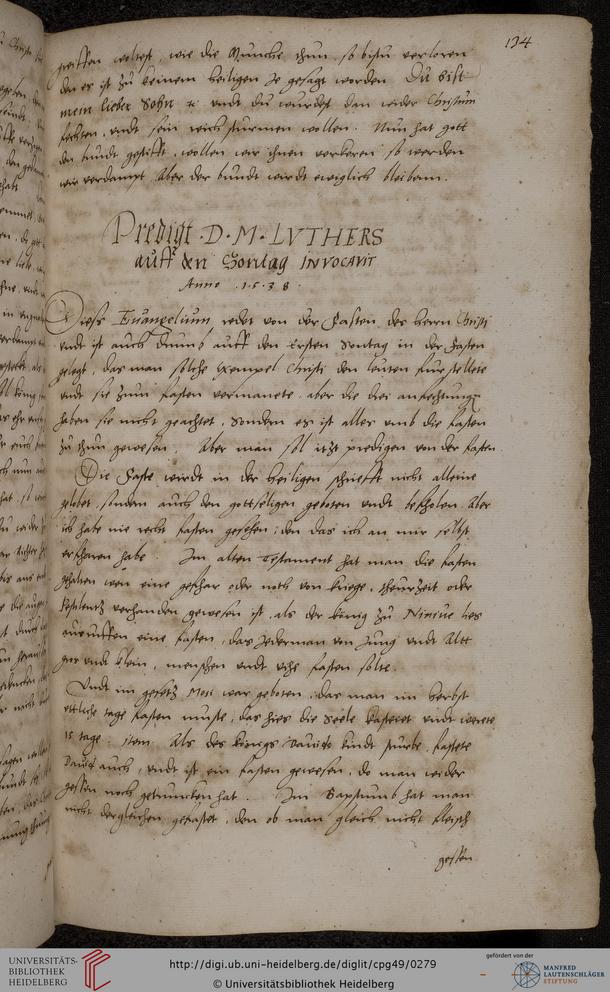 134
greiffen woltest, wie die Munche thun, so bistu verloren
den es ist zu keinem heiligen je gesagt worden Du bist
mein lieber Sohn ꝛc vndt du wurdest dan wider Christum
fechten, vndt sein reich sturmen wollen. Nun hat gott
den bundt gestifft, wollen wir ihnen verkeren so werden
wir verdampt. Aber der bundt wirdt ewiglich bleiben.
Predigt · D · M · LVTHERS
auff den Sontag INVOCAVIT
Anno · 1538 ·
Diess Euangelium redet von der Fasten des herrn Christi
vndt ist auch drumb auff den Ersten Sontag in der Fasten
gelegt, das man solche Exempel Christi den leuten furstellete
vndt sie zum fasten vermanete. aber die drei anfechtung
haben sie nicht geachtet, sondern es ist alles vmb die fasten
zu thun gewesen. Aber man sol itzt predigen von der fasten.
Die Faste wirdt in der heiligen schrifft nicht alleine
gelobet, sondern auch den gottseligen geboten vndt befholen. Aber
ich habe nie recht fasten gesehen, den das ich an mir selbst
erfharen habe. Im alten Testament hat man die fasten
gehalten wen eine gefhar oder noth von kriege, theurzeit oder
Pestilentz verhanden gewesen ist, als der konig zu Niniue lies
ausruffen eine fasten, das Jederman von Jung vndt Altt
gros vndt klein, menschen vndt vihe fasten solte.
Vndt im gesetz Mosi war geboten, das man im herbst
ettliche tage fasten muste, das hies die Seele kasteiet vndt werete
tage. item Als des konigs Dauids kindt sturbe, fastete
Dauid auch, vndt ist ein fasten gewesen, do man weder
gessen noch getruncken hat. Im Bapstumb hat man
nicht dergleichen gefastet, den ob man gleich nicht fleisch
gessen
UNIVERSITÄTS-
BIBLIOTHEK
HEIDELBERG
http://digi.ub.uni-heidelberg.de/diglit/cpg49/0279
© Universitätsbibliothek Heidelberg
gefördert von der
MANFRED
LAUTENSCHLÄGER
STIFTUNG